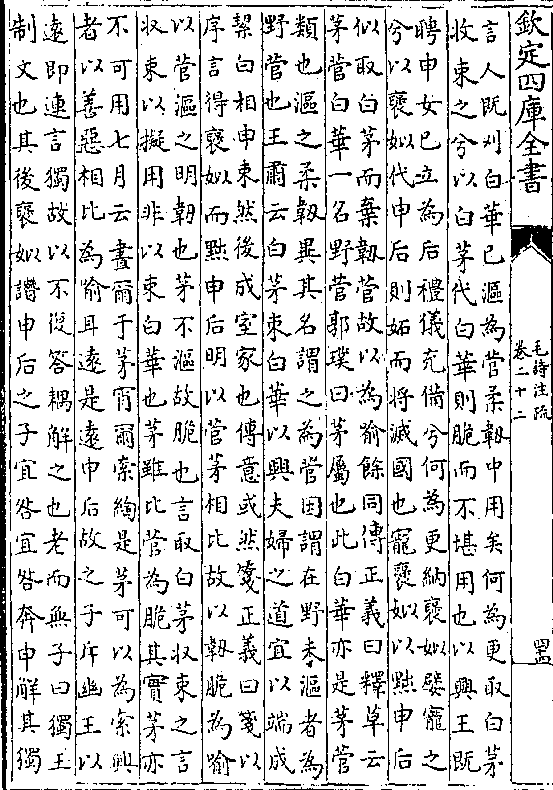 欽定四庫全書
毛詩注疏
卷二十二
言人既刈白華已漚為菅柔韌中用矣何為更取白茅
收束之兮以白茅代白華則脆而不堪用也以興王既
聘申女已立為后禮儀充備兮何為更納褒姒嬖寵之
兮以褒姒代申后則妬而將滅國也寵褒姒以黜申后
似取白茅而棄韌菅故以為喻餘同傳正義曰釋草云
茅菅白華一名野菅郭璞曰茅屬也此白華亦是茅菅
類也漚之柔韌異其名謂之為菅因謂在野未漚者為
野菅也王肅云白茅束白華以興夫婦之道宜以端成
絜白相申束然後成室家也傳意或然箋正義曰箋以
序言得褒姒而黜申后明以菅茅相比故以韌脆為喻
以菅漚之明韌也茅不漚故脆也言取白茅收束之言
收束以擬用非以束白華也茅雖比菅為脆其實茅亦
不可用七月云晝爾于茅宵爾索綯是茅可以為索興
者以善惡相比為喻耳遠是遠申后故之子斥幽王以
遠即連言獨故以不復答耦解之也老而無子曰獨王
制文也其後褒姒譖申后之子宜咎宜咎奔申解其獨